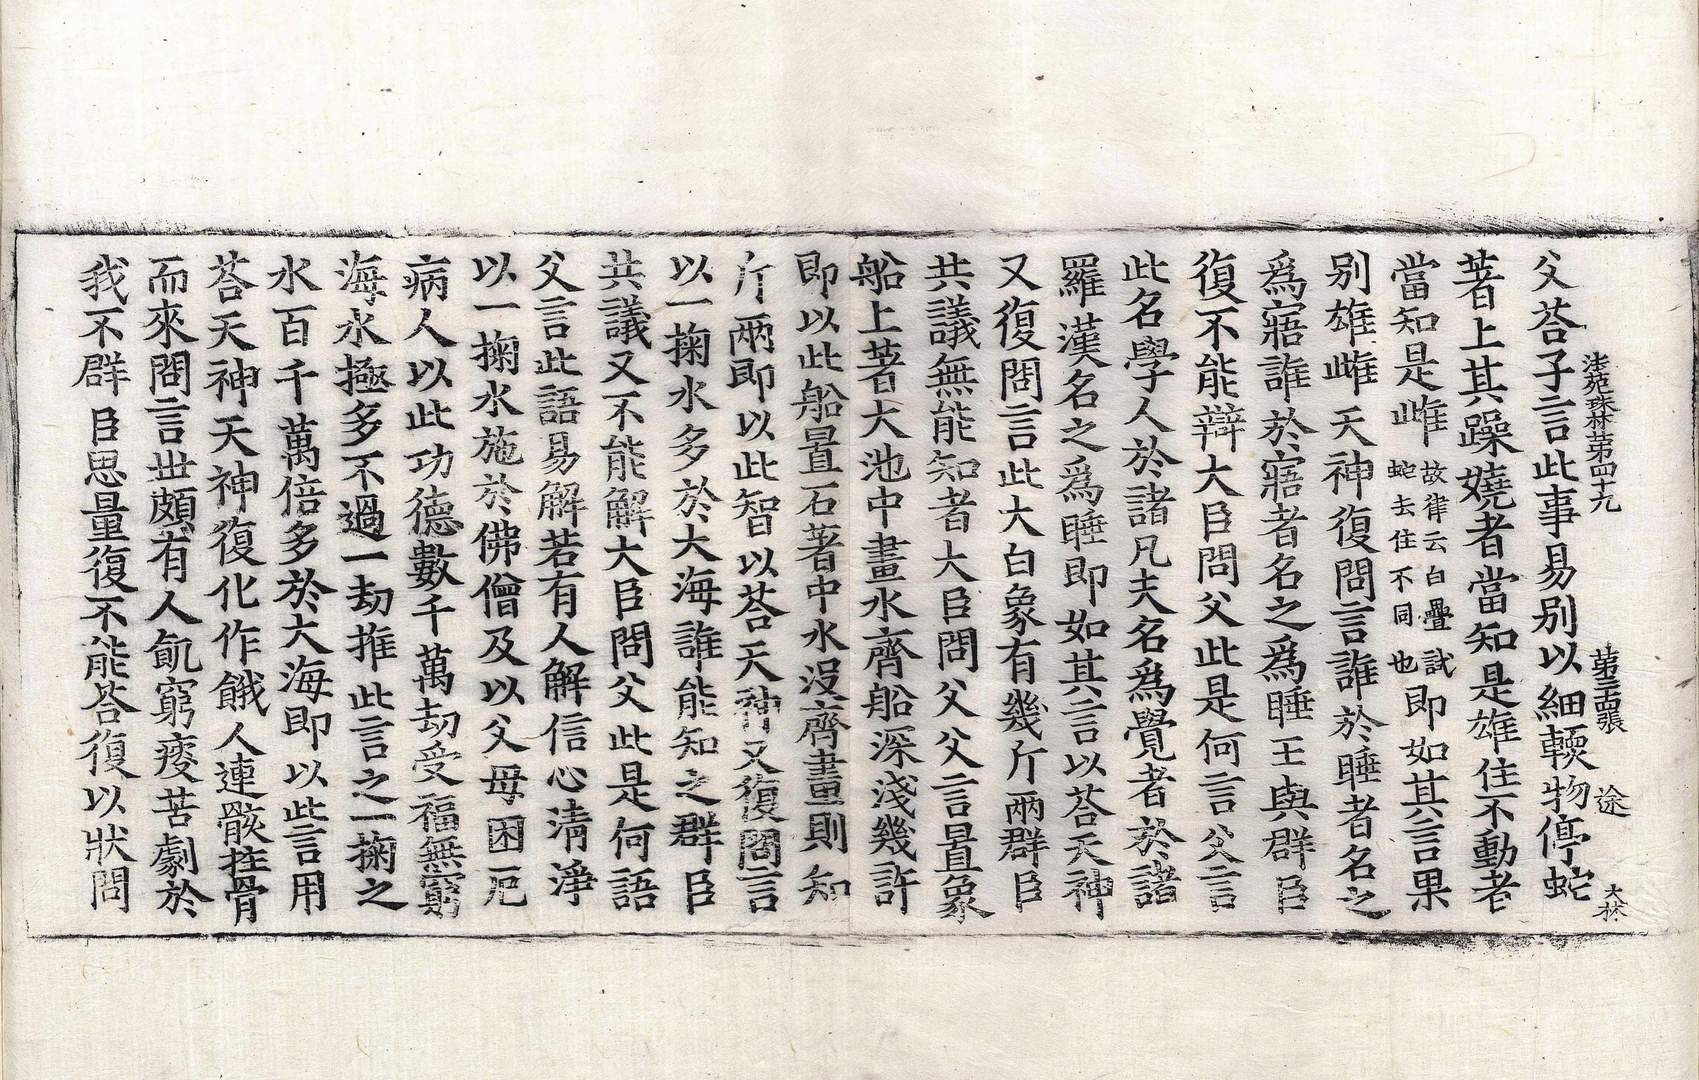 法苑珠林第四十九 第三十四張 途 大林
父荅子言此事易別以細軟物停蛇
著上其躁嬈者當知是雄住不動者
當知是雌故律云白疊試蛇去住不同也即如其言果
別雄雌天神復問言誰於睡者名之
爲寤誰於寤者名之爲睡王與群臣
復不能辯大臣問父此是何言父言
此名學人於諸凡夫名爲覺者於諸
羅漢名之爲睡即如其言以荅天神
又復問言此大白象有幾斤兩群臣
共議無能知者大臣問父父言置象
船上著大池中畫水齊船深淺幾許
即以此船置石著中水沒齊畫則知
斤兩即以此智以荅天神又復問言
以一掬水多於大海誰能知之群臣
共議又不能解大臣問父此是何語
父言此語易解若有人解信心清淨
以一掬水施於佛僧及以父母困厄
病人以此功德數千萬劫受福無窮
海水極多不過一劫推此言之一掬之
水百千萬倍多於大海即以此言用
荅天神天神復化作餓人連骸拄骨
而來問言世頗有人飢窮瘦苦劇於
我不群臣思量復不能荅復以狀問